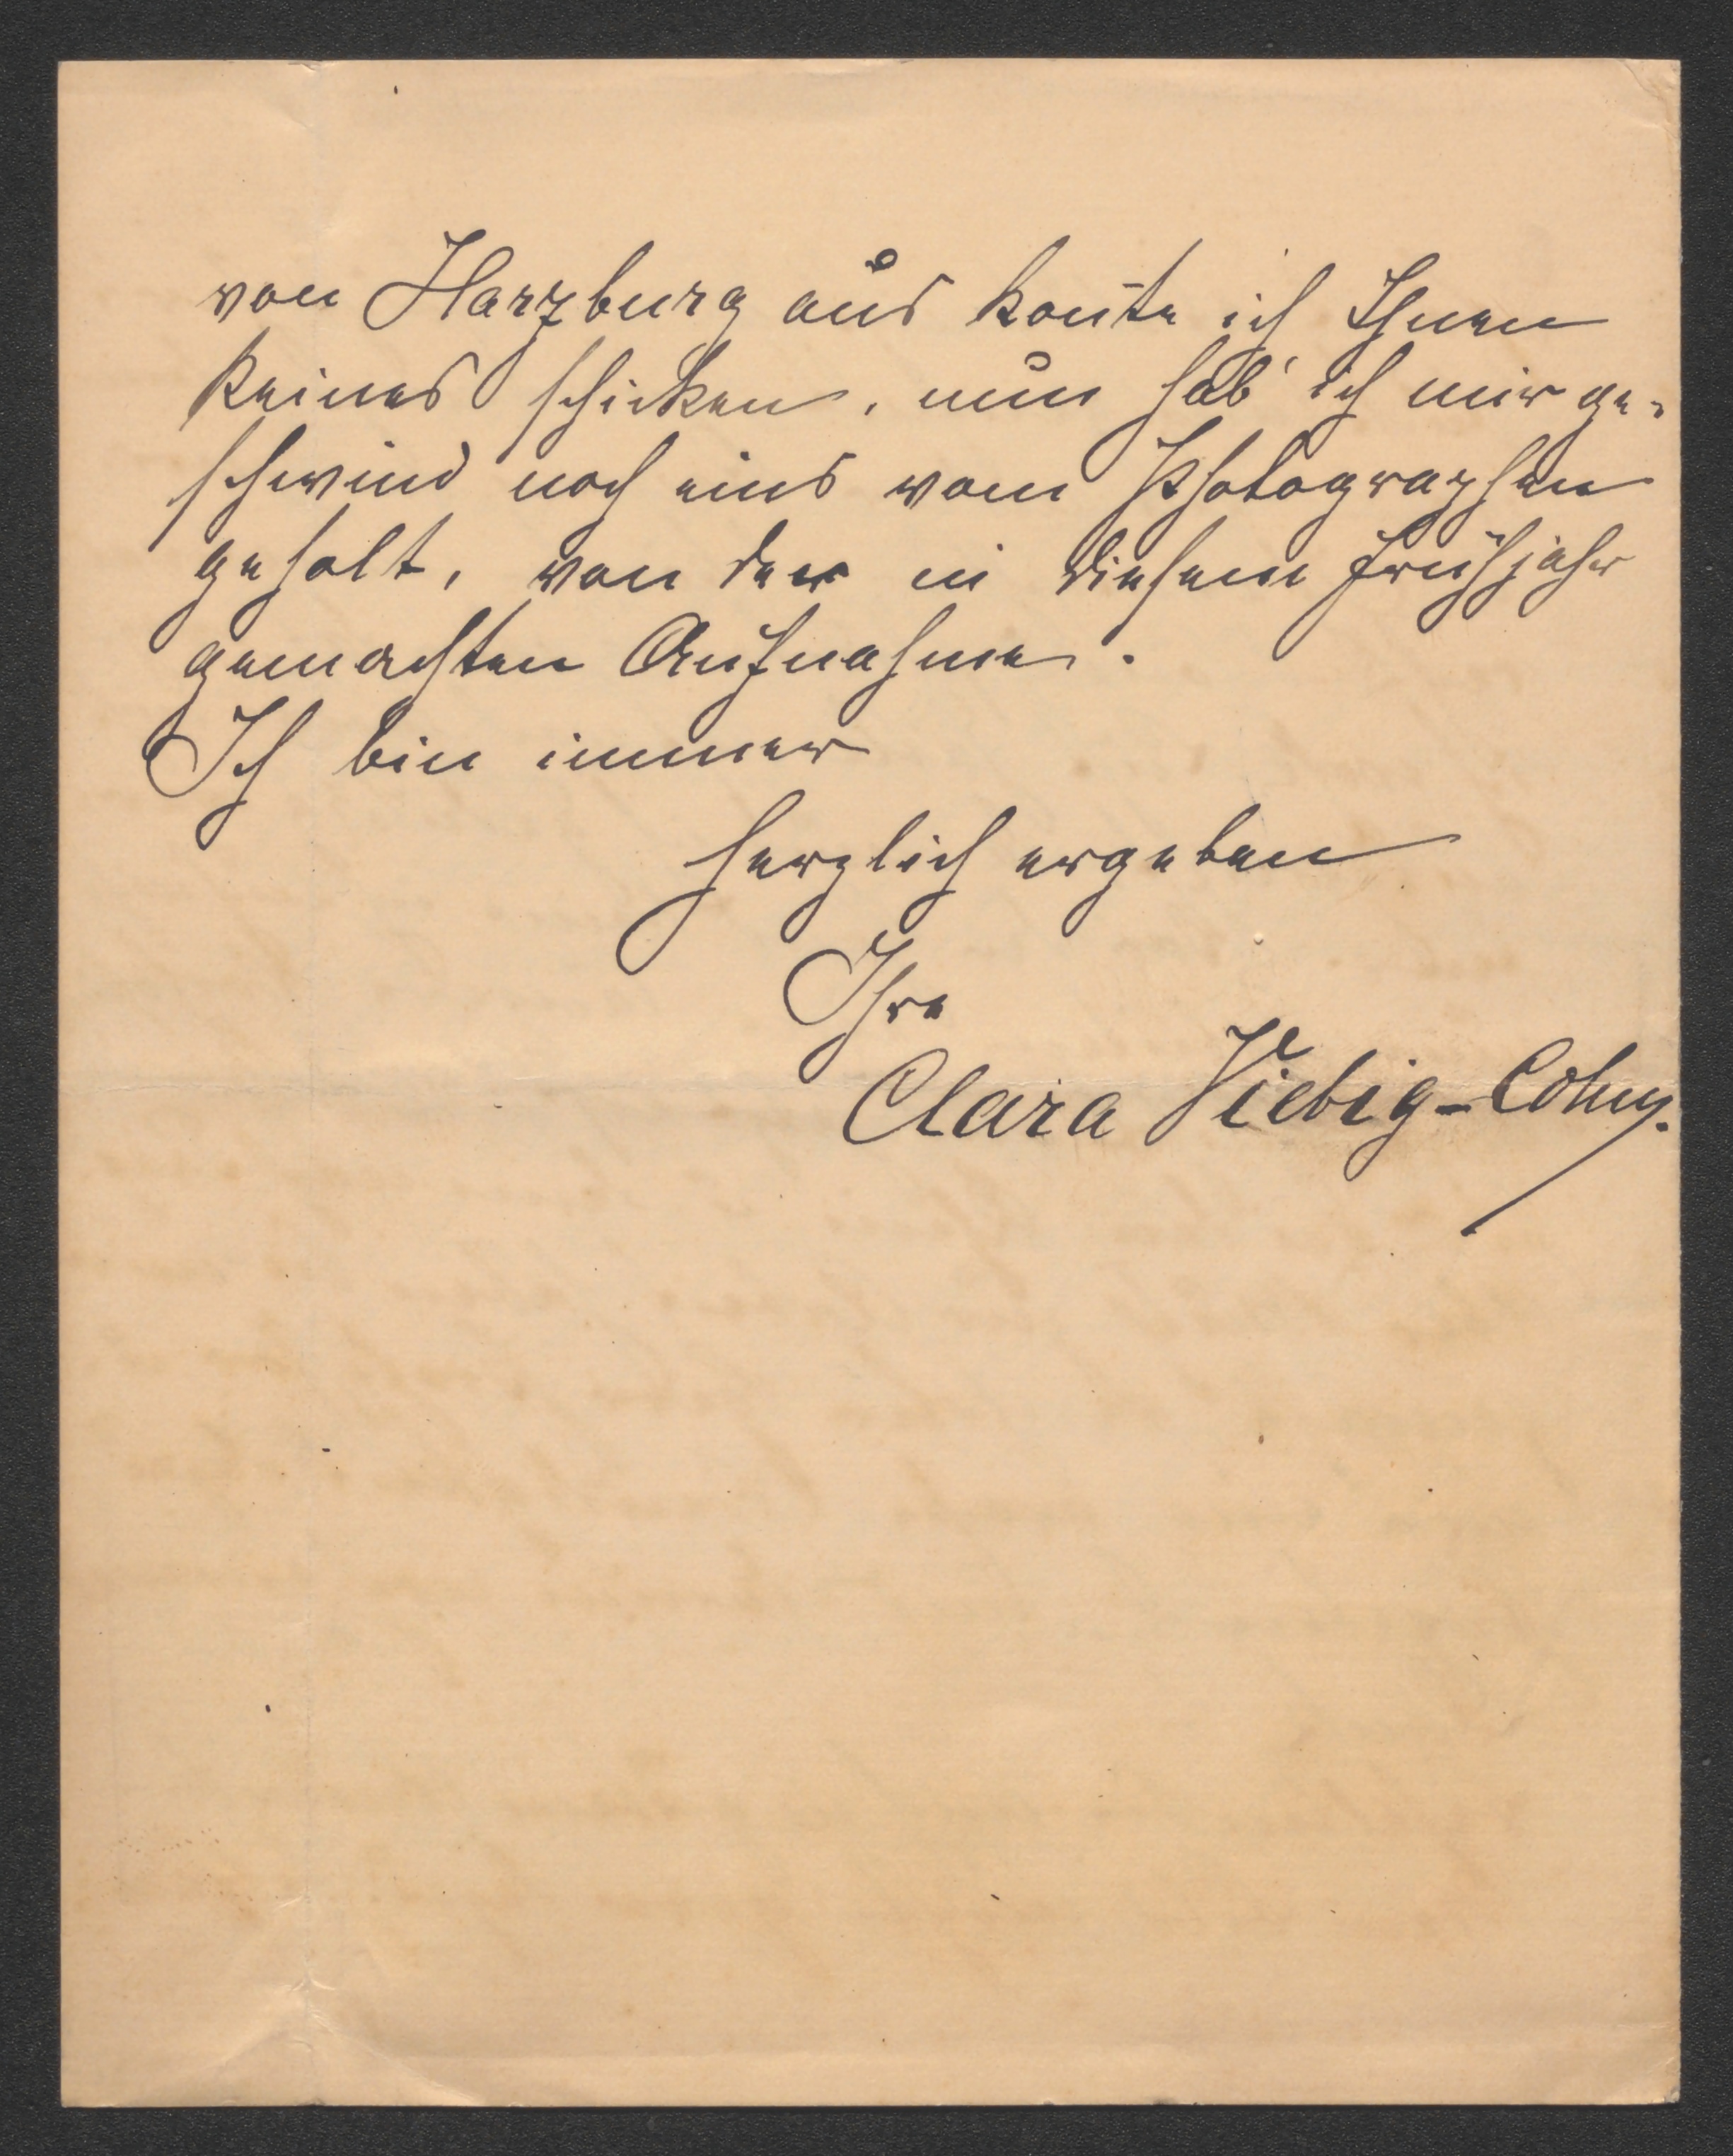 von Harzburg aus kon̄te ich Ihnen
keines schicken, nun hab' ich mir ge-
schwind noch eins vom Photographen
geholt, von der in diesem Frühjahr
gemachten Aufnahme.
Ich bin immer
herzlich ergeben
Ihre
Clara Viebig-Cohn.